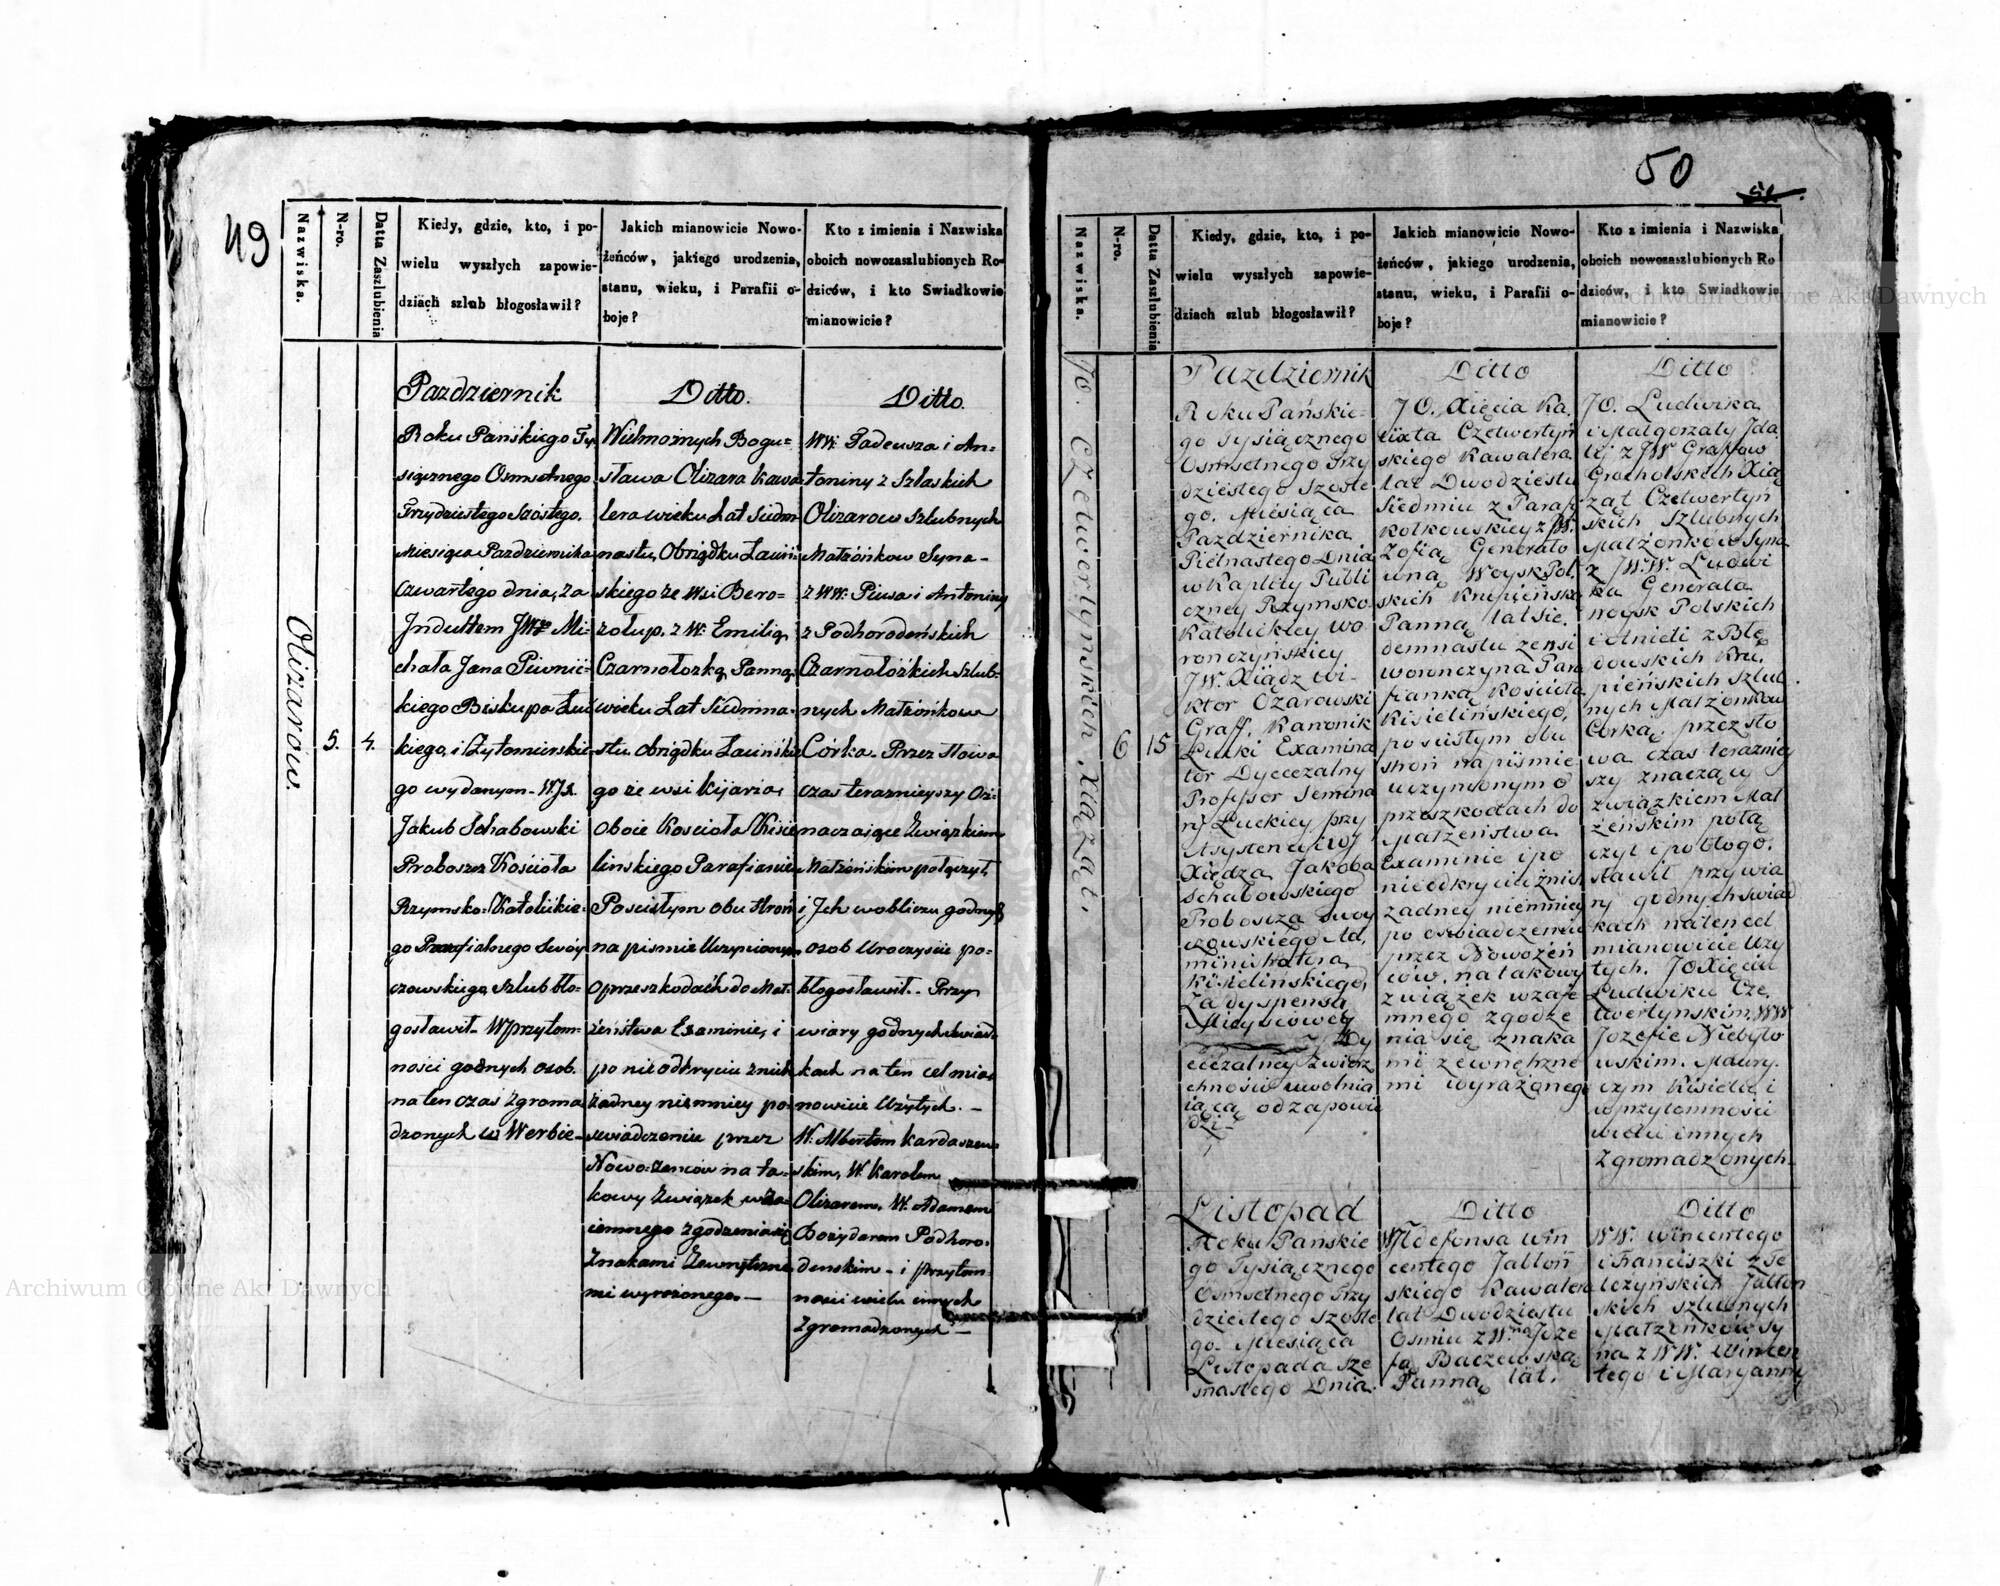 49
Nazwiska.
N-ro.
Datta Zaszlubienia
Kiedy, gdzie, kto, i po-
wielu wyszłych zapowie-
dziach szlub błogosławił?
Jakich mianowicie Nowo-
żeńców, jakiego urodzenia,
stanu, wieku, i Parafii o-
boje?
Kto z imienia i Nazwiska
oboich nowozaszlubionych Ro-
dziców, i kto Swiadkowie
mianowicie?
Olizarow.
5.
4.
Pazdziernik
Roku Pańskiego Ty
siącznego Osmsetnego
Trzydziestego szóstego.
Miesiąca Pazdziernika
Czwartego dnia, za
Indultem JWo Mi-
chała Jana Piwnic-
kiego Biskupa Łuc
kiego, i Żytomirskie-
go wydanym. WJX.
Jakub Schabowski
Proboszcz Kościoła
Rzymsko-Katolickie-
go Parafialnego Swoy
czowskiego, szlub bło-
gosławił. W przytom-
ności godnych osób.
na ten czas zgroma
dzonych w Werbie-
Ditto.
Wielmożnych Bogu-
sława Olizara kawa
lera wieku Lat siedm
nastu, Obrządku Łaciń
skiego ze Wsi Bero-
zolup. z W. Emilią
Czarnołozką Panną,
wieku Lat siedmna-
stu. Obrządku Łacińskie
go ze wsi Kijarza,
oboie Kościoła Kisie
linskiego Parafianie
Po scisłym obu stron
na pismie uczynionym
o przeszkodach do Mał-
żeństwa Examinie, i
po nieodkryciu z nich
żadney niemniey po
świadczenie przez
Nowożeńców na ta-
kowy związek wza-
iemnego zgodzenia się
Znakami Zewnętrzne
mi wyrażonego.—
Ditto.
WW: Tadeusza i An-
toniny z Szlaskich
Olizarow szlubnych
Małżonkow Syna-
z WW: Piusa i Antoniny
z Podhorodeńskich
Czarnołózkich szlub-
nych Małżónkow
Córką. Przez słowa
czas teraznieyszy Oz-
naczaiące Związkiem
Małżeńskim połączył,
i Ich w obliczu godnych
osob Uroczyscie po-
błogosławił. Przy
wiary godnych świad-
kach na ten cel mia-
nowicie Użytych. —
W. Albertem Kardaszew-
skim, W. Karolem
Olizarem, W. Adamem
Bożydarem Podhoro-
denskim - i przytom-
ności wielu innych
Zgromadzonych —
50
Nazwiska.
N-ro.
Datta Zaszlubienia
Kiedy, gdzie, kto, i po-
wielu wyszłych zapowie-
dziach szlub błogosławił?
Jakich mianowicie Nowo-
żeńców, jakiego urodzenia,
stanu, wieku, i Parafii o-
boje?
Kto z imienia i Nazwiska
oboich nowozaszlubionych Ro
dziców, i kto Swiadkowie
mianowicie?
JO. Czetwertyńskich Xiążąt.
6
15
Pazdziernik
Roku Pańskie-
go tysiącznego
Osmsetnego Trzy
dziestego szoste
go. Miesiąca
Pazdziernika
Pietnastego Dnia
w Kaplicy Publi
czney Rzymsko
Katolickiey Wo
rończyńskiey
JW. Xiądz Wi-
ktor Ożarowski
Graff, Kanonik
Łucki Examina
tor Dyecezalny
Professor Semina
ryi Łuckiey przy
Assystencyi WJ
Xiędza Jakoba
Schabowskiego
Proboszcza Swoy
czowskiego Ad,
ministratora
Kisielińskiego,
Za dyspensą
Mieyscowey
Dy
ecezalney Zwierz
chności uwolnia
iącą od zapowie
dzi-
Ditto
JO. Xięcia Ka.
lixta Czetwertyń
skiego Kawalera
lat Dwodziestu
Siedmiu z Parafi
Kołkowskiey z JW.
Zofią Generało
wną Woysk Pol,
skich Krupieńską
Panną lat sie.
demnastu ze wsi
Worończyna Para
fianką Kościoła
Kisielińskiego,
po scisłym obu
stron na pismie
uczynionym o
przeszkodach do
Małżeństwa
Examinie i po
nieodkryciu z nich
żadney niemniey
po oswiadczeniu
przez Nowożeń
ców, na takowy
związek wzaje
mnego zgodze
nia się znaka
mi zewnętrzne
mi wyrażonego
Ditto
JO. Ludwika
i Małgorzaty Ida
lij z JW Graffow
Grocholskich Xią
żąt Czetwertyń
skich szlubnych
Małżonkow Syna
z JW.W. Ludwi
ka Generała
woysk Polskich
i Anieli z Błę
dowskich Kru,
pieńskich szlub
nych Małżonkow
Córką, przez sło
wa czas terazniey
szy znaczący
związkiem Mał
żeńskim połą
czył i pobłogo.
sławił przy wia
ry godnych świad
kach na ten cel
mianowicie Uży
tych. JO Xięciu
Ludwiku Cze,
twertynskim, WW
Jozefie Niebyło
wskim. Maury.
cym Kisielu, i
w przytomności
wielu innych
zgromadzonych-
Listopad
Roku Pańskie
go Tysiącznego
Osmsetnego Trzy
dziestego szoste
go. Miesiąca
Listopada sze
snastego Dnia
Ditto
W Ildefonsa Win
centego Jabłoń
skiego Kawalera
lat Dwodziestu
Osmiu z W.ną Joze
fą Baczewską
Panną lat.
Ditto
WW. Wincentego
i Franciszki z Te
leżyńskich Jabłoń
skich szlubnych
Małżonków Sy
na z WW. Wincen
tego i Maryanny
Archiwum Główne Akt Dawnych
Archiwum Główne Akt Dawnych